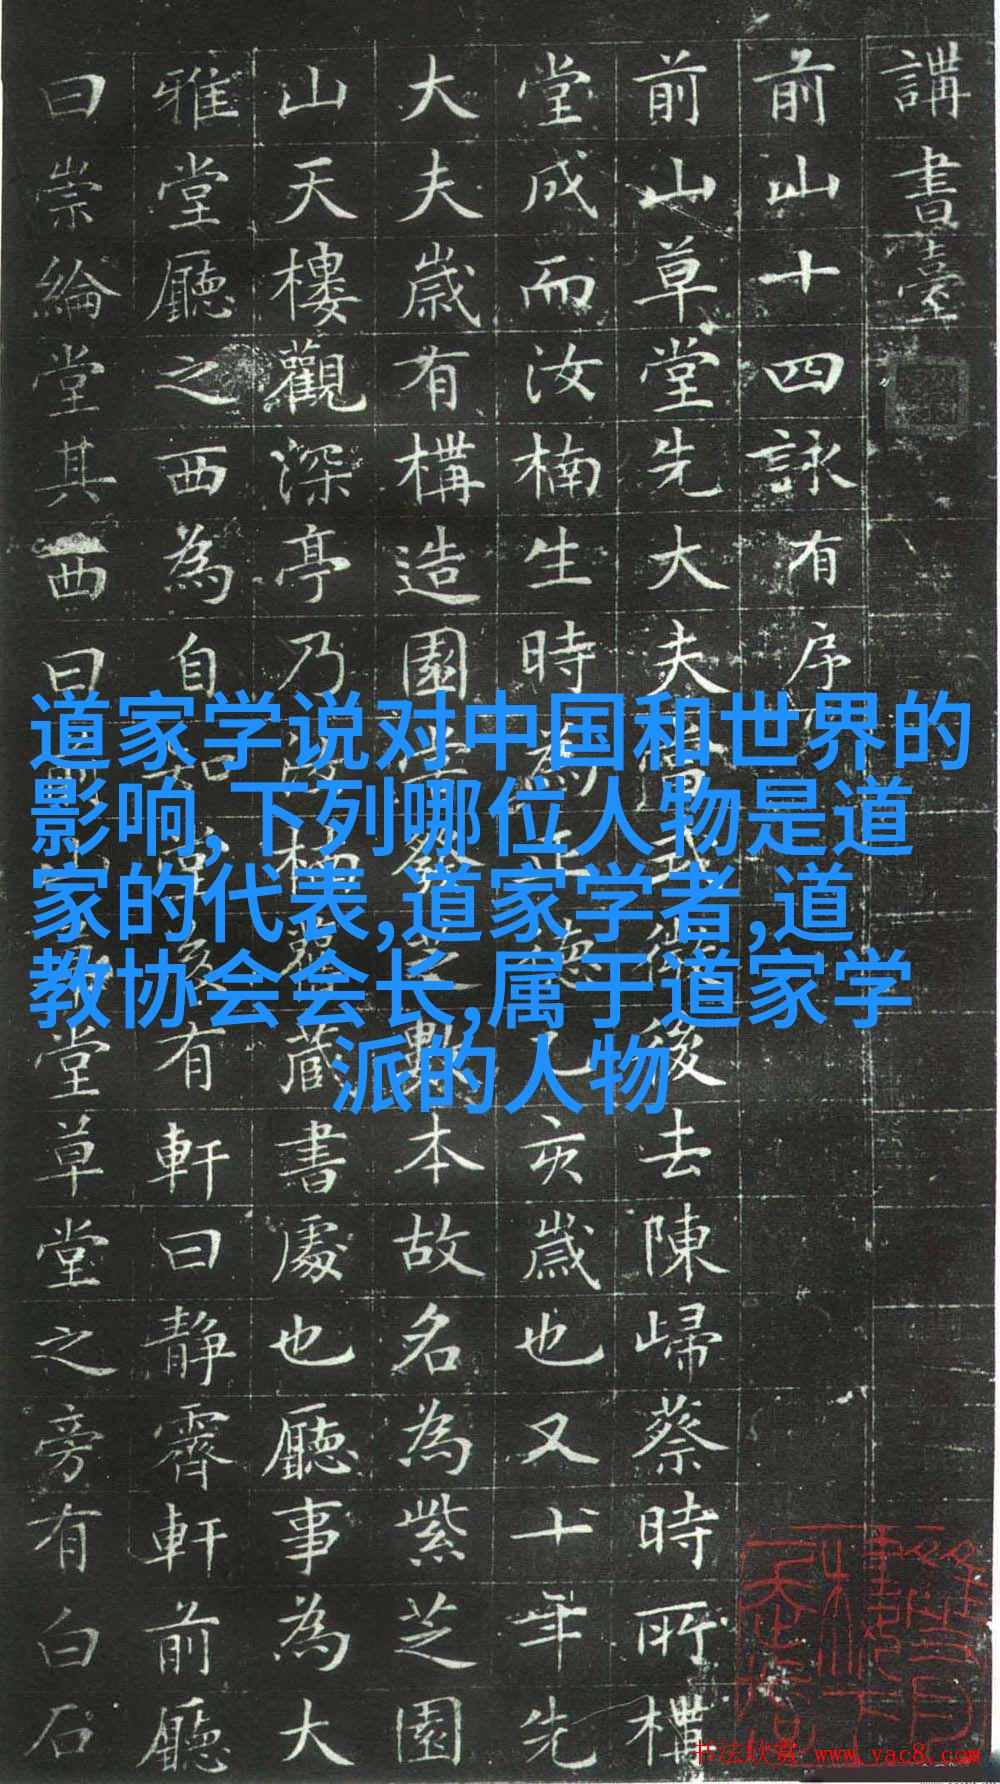 講書臺
前山十四詠有序
前山草堂先大夫
後去陳歸蔡時所構
堂成而汝楠生時為
乙亥歲也又十年先
大夫歲有構造園
本故名為紫芝園
山天樓觀深亭乃
藏書處也廳事為大
雅堂廳之西為自
有軒曰靜霽軒前廳
曰崇綸堂其西曰
堂草堂之旁有白石
道家学说对中国和世界的
影响,下列哪位人物是道
家的代表,道家学者,道
教协会会长,属于道家学
派的人物
书法欣赏 www.yac8.com